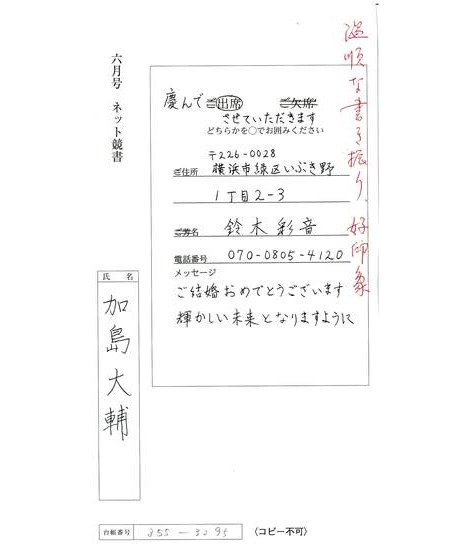 温順な書き振り、好印象
六月号 ネット競書
慶んで ご出席 ご欠席
させていただきます
どちらかを○でお囲みください
〒226-0028
ご住所 横浜市緑区いぶき野
1丁目2-3
ご芳名 鈴木彩音
電話番号 070-0805-4120
メッセージ
ご結婚おめでとうございます
輝かしい未来となりますように
氏名
加島大輔
台帳番号 355-3295 〈コピー不可〉